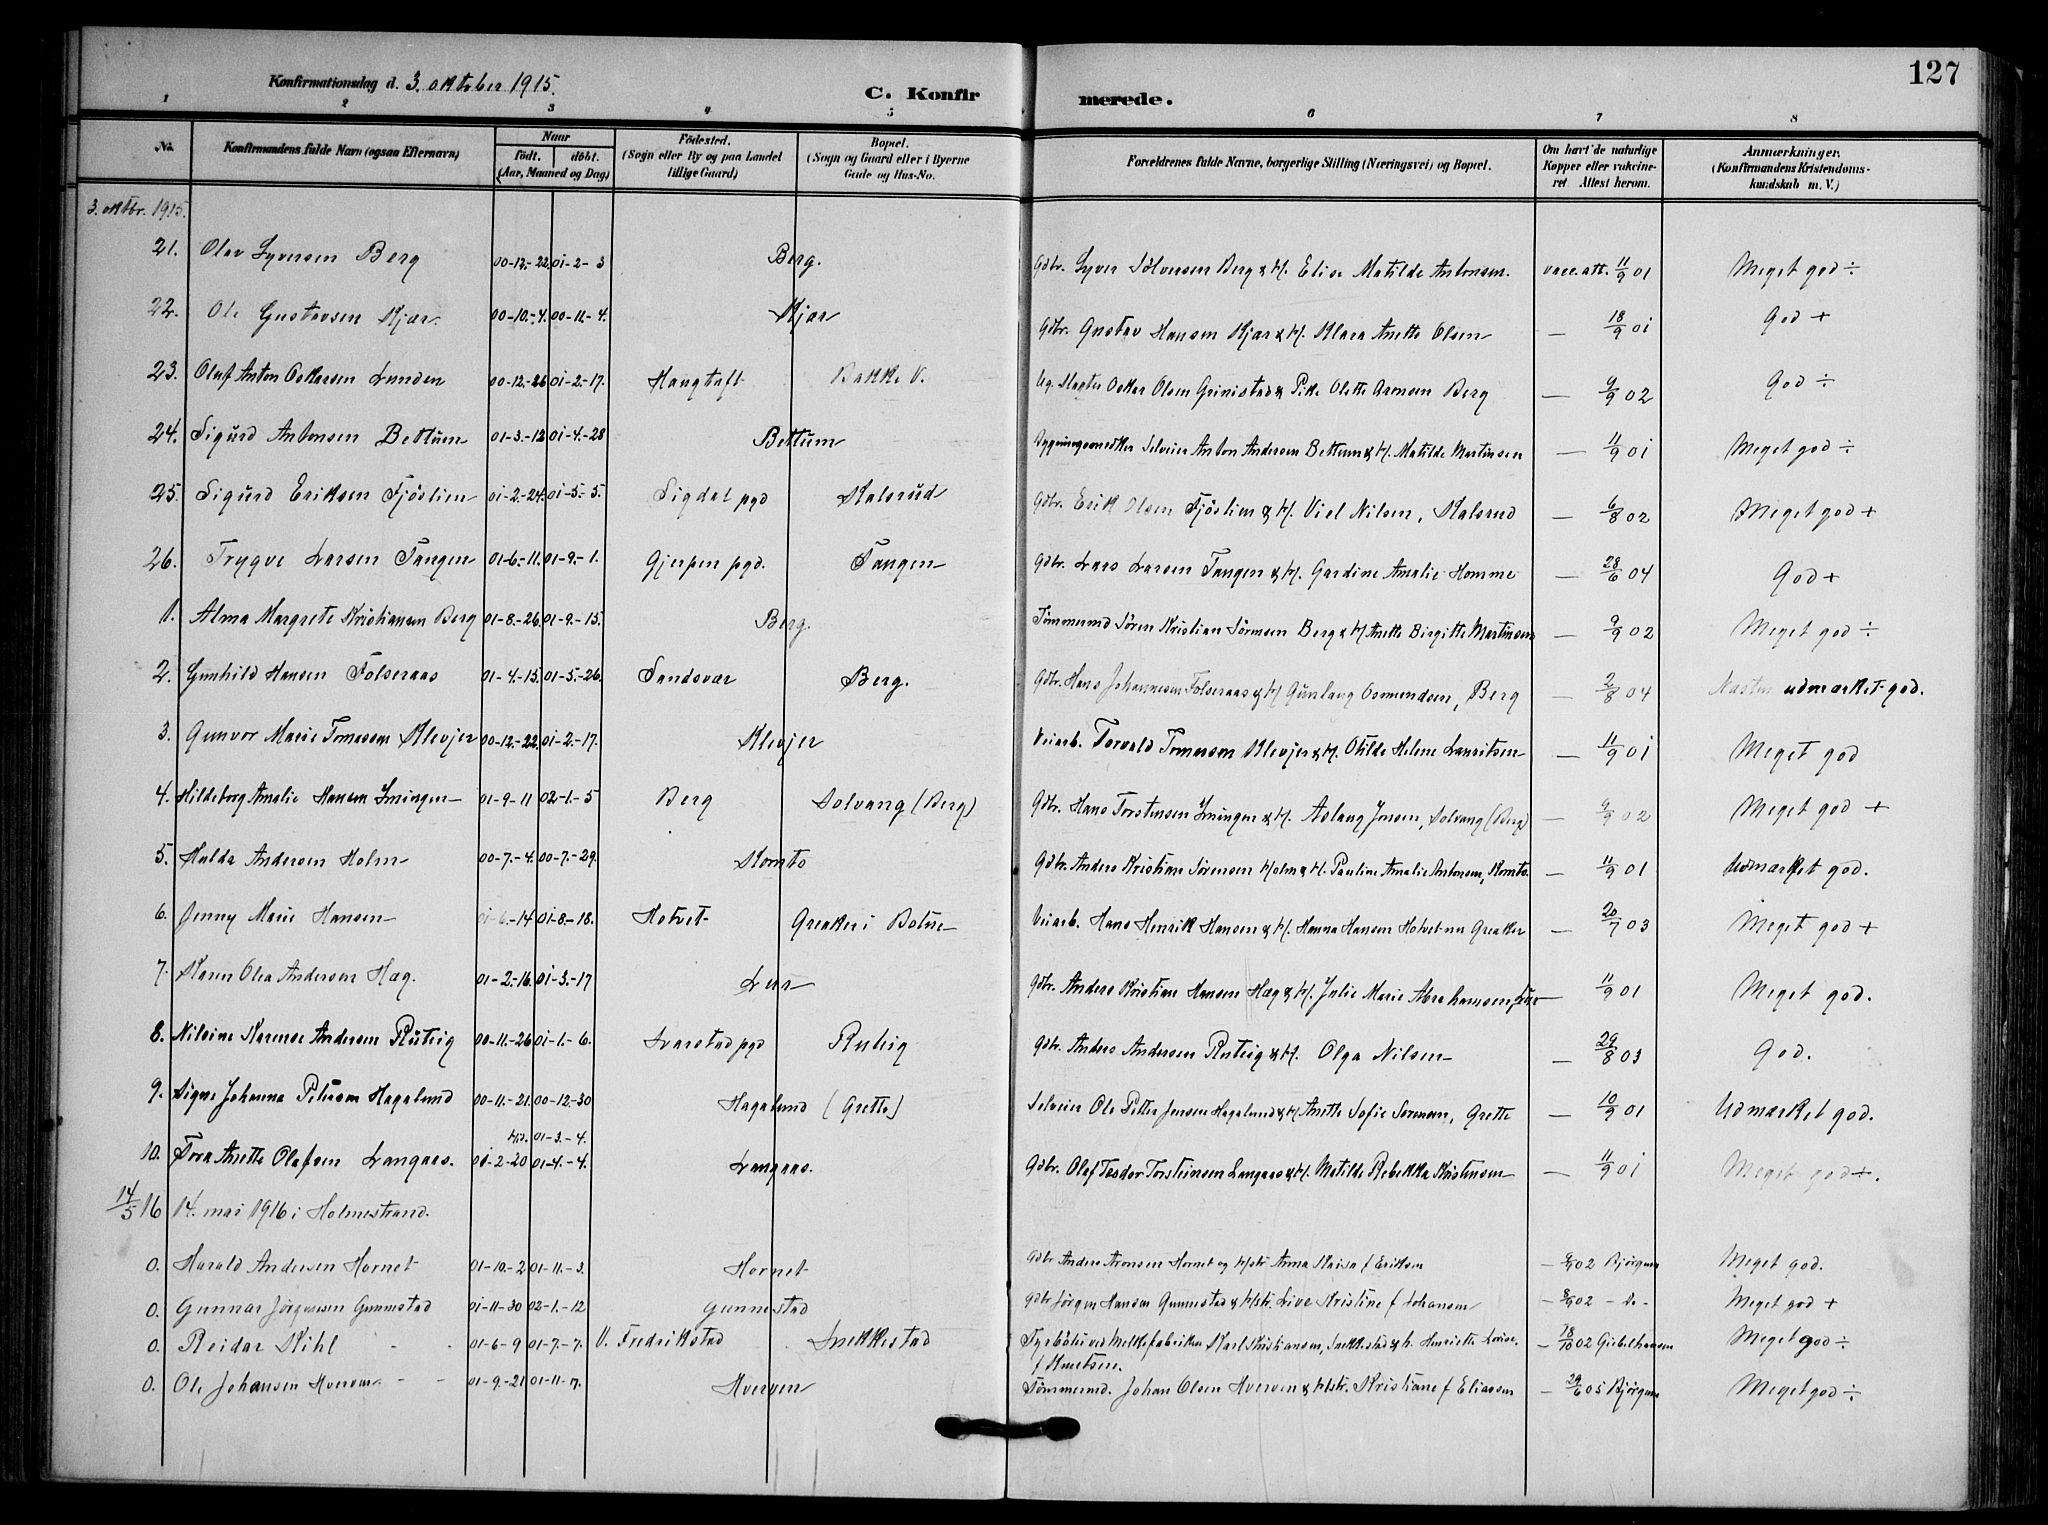 127
Konfirmationsdag d. 3. oktober 1915.
C. Konfirmerede.
1 2 3 4 5 6 7 8
No. | Konfirmandens fulde Navn (ogsaa Efternavn) | Naar født. døbt. (Aar, Maaned og Dag) | Fødested. (Sogn eller By og paa Landet tillige Gaard) | Bopæl. (Sogn og Gaard eller i Byerne Gade og Hus-No. | Forældrenes fulde Navne, borgerlige Stilling (Næringsvei) og Bopæl. | Om havt de naturlige Kopper eller vakcineret Attest herom. | Anmærkninger. (Konfirmandens Kristendomskundskab m. V.)
3. oktbr. 1915.
21. Olav Syversen Berg 00-12-22. 01-2-3 Berg. Gdbr. Syver Sölvesen Berg & H. Elise Matilde Antonsen. vacc. att. 11/9 01 Meget god ÷
22. Ole Gustavsen Kjær. 00-10-4. 00-11-4. Kjær Gdbr. Gustav Hansen Kjær & H. Klara Anette Olsen — 18/9 01 God +
23. Oluf Anton Oskarsen Lunden 00-12-26 01-2-17. Haugtuft Bakke V. Ug. Slagter Oskar Olsen Grinistad & Pike Olette Arnesen Berg — 9/9 02 God ÷
24. Sigurd Antonsen Bettum 01-3-12 01-4-28 Bettum Bygningssnedker Selveier Anton Andersen Bettum & H. Matilde Martinsen — 11/9 01 Meget god ÷
25. Sigurd Eriksen Fjöslien 01-2-24. 01-5-5. Sigdal pgd Kalsrud Gdbr. Erik Olsen Fjöslien & H. Viel Nilsen, Kalsrud — 6/8 02 Meget god +
26. Trygve Larsen Tangen 01-6-11. 01-9-1. Gjerpen pgd. Tangen Gdbr. Lars Larsen Tangen & H. Gardine Amalie Homme — 28/6 04 God +
1. Alma Margrete Kristiansen Berg 01-8-26. 01-9-15. Berg. Tömmermd Sören Kristian Sörensen Berg & H Anette Birgitte Martinsen — 9/9 02 Meget god ÷
2. Gunhild Hansen Folseraas 01-4-15. 01-5-26. Sandsvær Berg. Gdbr. Hans Johannesen Folseraas & H Gunlaug Osmundsen, Berg — 2/8 04 Næsten udmærket god.
3. Gunvor Marie Tomassen Klevjer 00-12-22. 01-2-17. Klevjer Veiarb. Torvald Tomassen Klevjer & H. Otilde Helene Lauritsen — 11/9 01 Meget god
4. Hildeborg Amalie Hansen Smingen 01-9-11 02-1-5 Berg Solvang (Berg) Gdbr. Hans Torstensen Smingen & H. Aslaug Jensen, Solvang (Berg) — 9/9 02 Meget god +
5. Hulda Andersen Holm 00-7-4. 00-7-29. Komto Gdbr. Anders Kristian Sörensen Holm & H. Pauline Amalie Antonsen, Komto. — 11/9 01 Udmærket god.
6. Jenny Marie Hansen 01-6-14 01-8-18. Hotvet Greaker i Botne Veiarb. Hans Henrik Hansen & H. Hanna Hansen Hotvet nu Greaker — 20/7 03 Meget god +
7. Karen Olea Andersen Hæg. 01-2-16. 01-3-17 Lur Gdbr. Anders Kristian Hansen Hæg & H. Julie Marie Abrahamsen, Lur — 11/9 01 Meget god.
8. Nilsine Karense Andersen Rutsig 00-11-26 01-1-6. Svarstad pgd Rutsig Gdbr. Anders Andersen Rutsig & H. Olga Nilsen — 29/8 03 God.
9. Signe Johanna Petersen Hagalund 00-11-21. 00-12-30 Hagalund (Grette) Selveier Ole Petter Jensen Hagalund & H Anette Sofie Sörensen, Grette — 10/9 01 Udmærket god.
Hjd. 01-3-4.
10. Tora Anette Olafsen Langaas. 01-2-20 01-4-4. Langaas. Gdbr. Olaf Teodor Torstensen Langaas & H. Matilde Rebekka Kristensen — 11/9 01 Meget god +.
14/5 16 14. mai 1916 i Holmestrand.
0. Harald Andersen Hornet 01-10-2 01-11-3. Hornet Gdbr Anders Aronsen Hornet og Hstr Anna Kaisa f Eriksen — 8/9 02 Bjørgum Meget god.
0. Gunnar Jørgensen Gunnestad 01-11-30 02-1-12 Gunnestad Gdbr Jørgen Hansen Gunnestad & Hstr. Live Kristine f Johansen — 8/9 02 - Do - Meget god +
0. Reidar Kihl 01-6-9 01-7-7. V. Fredrikstad Snekkestad Fyrbøter ved Melkefabriken Karl Kristiansen, Snekkestad & h. Henriette Lovise — 18/10 02 Giebelhausen Meget god ÷
f Knutsen.
0. Ole Johansen Hverven 01-9-21 01-11-7. Hverven Tömmermd. Johan Olsen Hverven & Hstr. Kristiane f Eliassen — 29/6 05 Bjørgum Meget god ÷